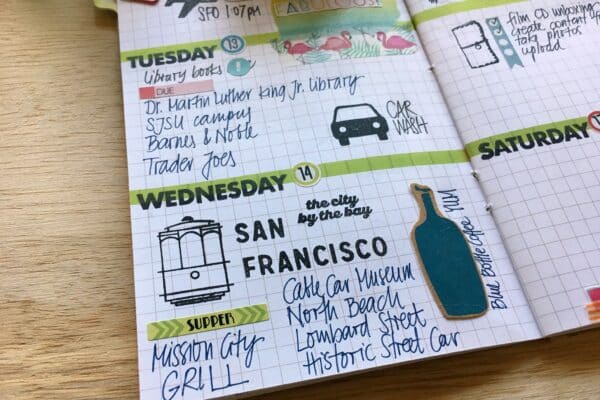 SFO 1:07pm
FABULOUS!
TUESDAY 13
library books
DUE
Dr. Martin Luther King Jr. Library
SJSU campus
Barnes & Noble
Trader Joes
CAR
WASH
WEDNESDAY 14
the city
by the bay
SAN
FRANCISCO
Cable Car Museum
North Beach
Lombard Street
Historic Street Car
SUPPER
Mission City
GRILL
Blue Bottle Coffee
film CD unboxing
create content
take photos
upload
SATURDAY